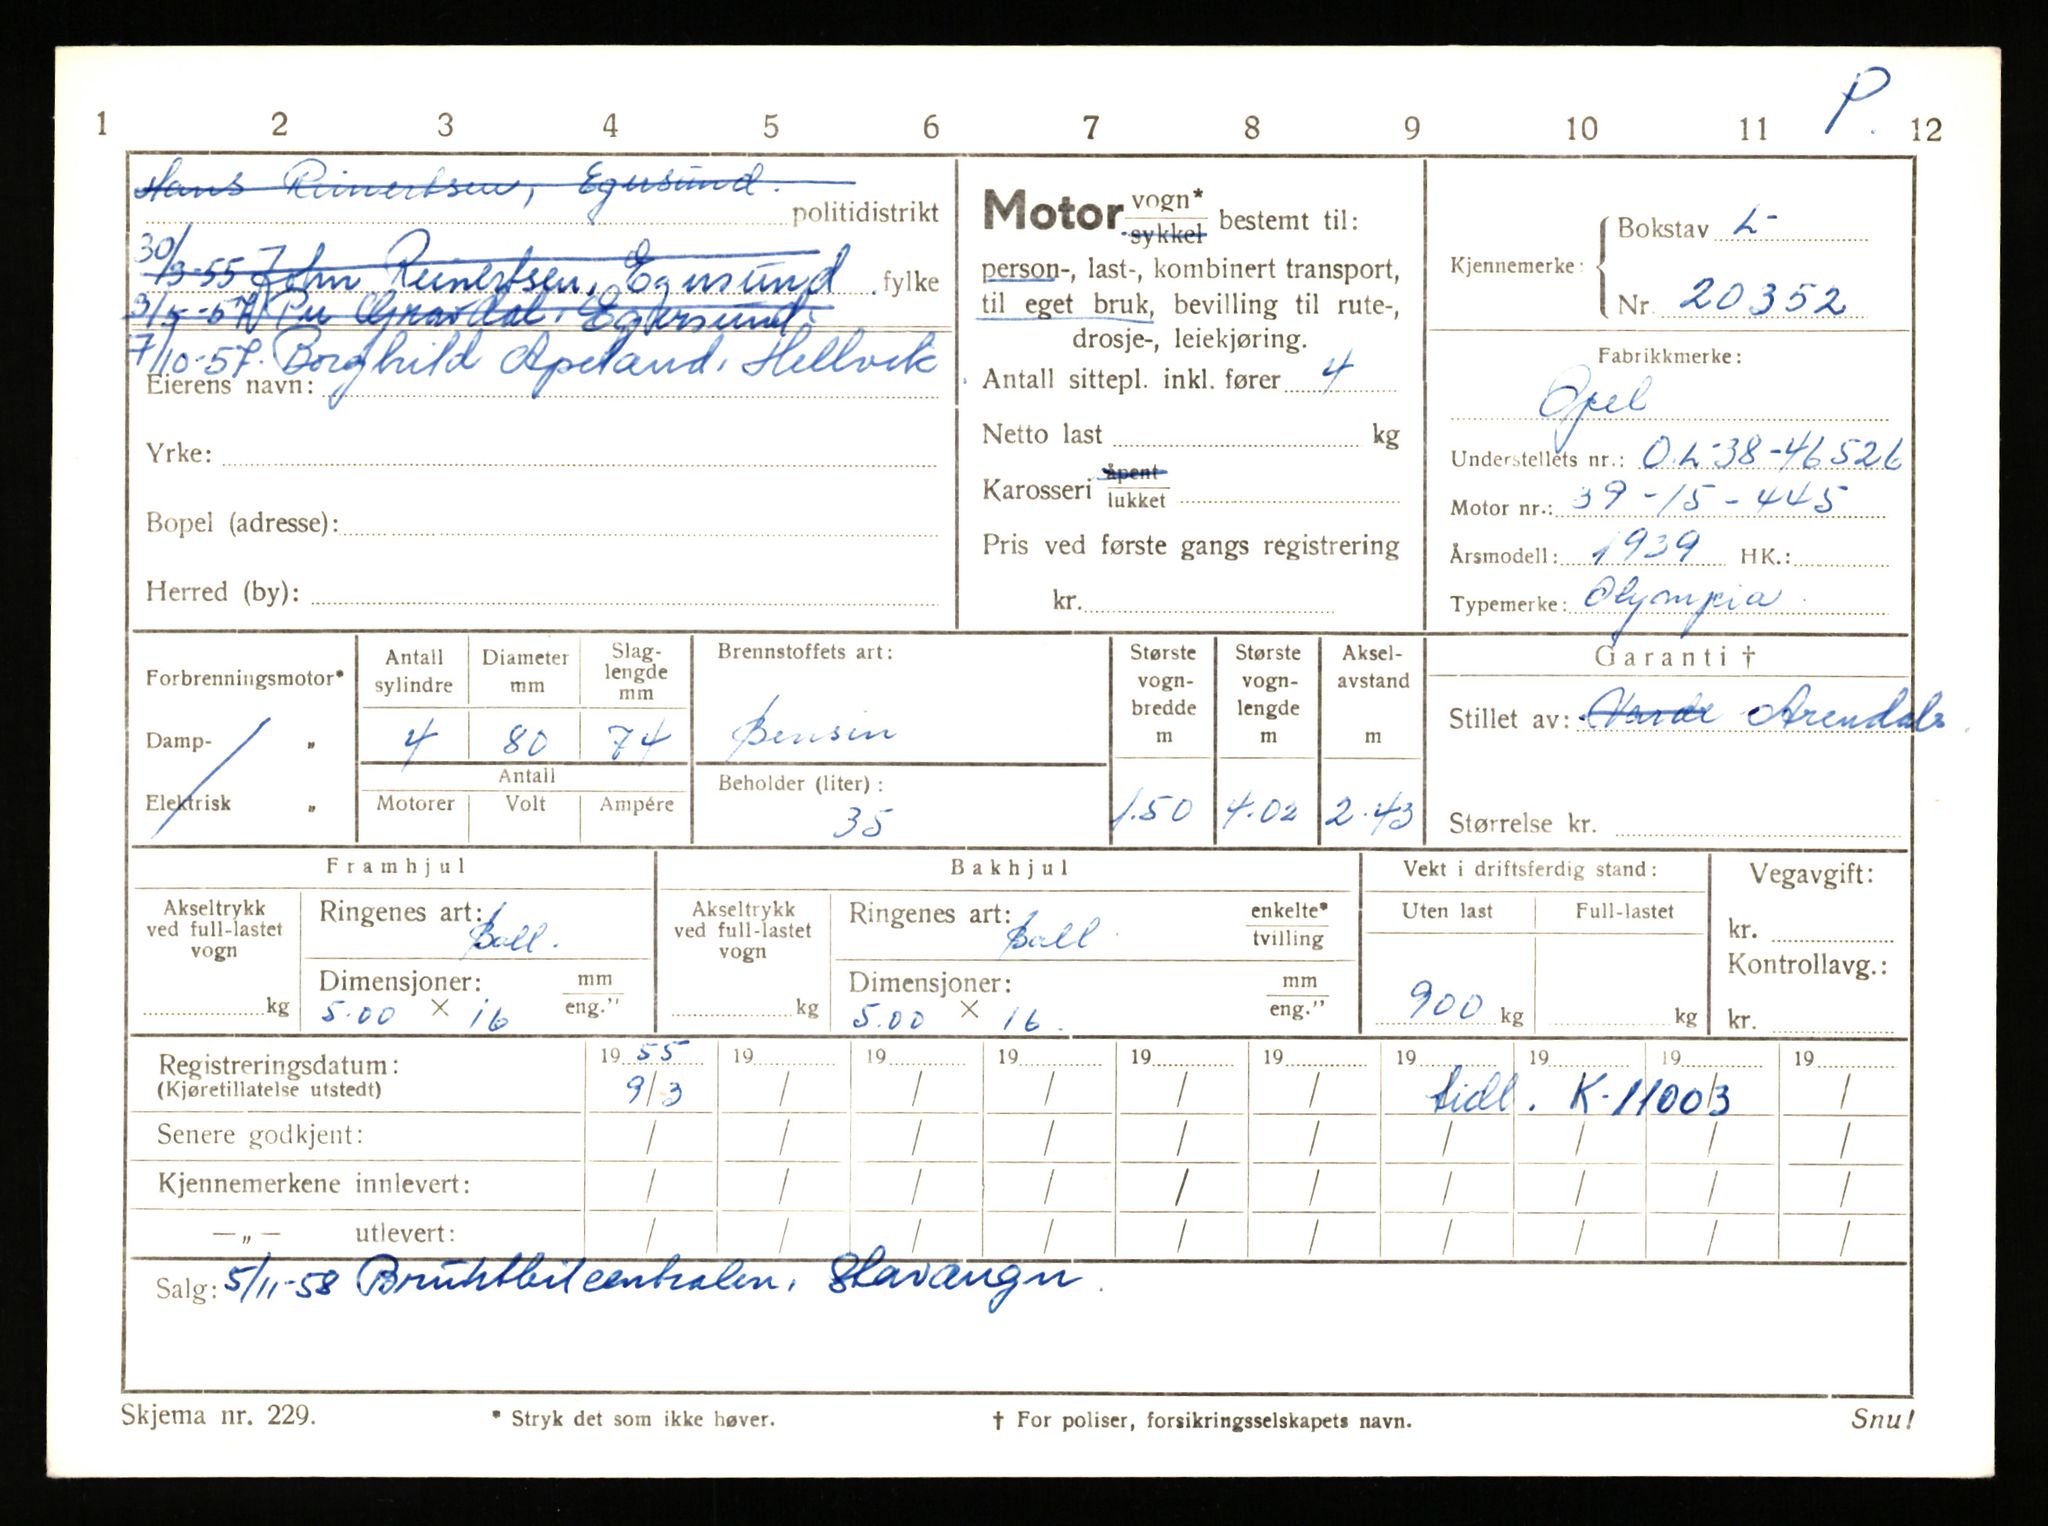 P.
1 2 3 4 5 6 7 8 9 10 11 12
Hans Reinertsen, Egersund.
politidistrikt
30/3-55 John Reinertsen, Egersund fylke
3/5-57 Per Gravdal, Egersund
7/10-57. Borghild Apeland, Hellvik
Eierens navn:
Yrke:
Bopel (adresse):
Herred (by):
Motor vogn* / sykkel bestemt til:
person-, last-, kombinert transport,
til eget bruk, bevilling til rute-,
drosje-, leiekjøring.
Antall sittepl. inkl. fører 4
Netto last kg
Karosseri åpent / lukket
Pris ved første gangs registrering
kr.
Kjennemerke: Bokstav L
Nr. 20352
Fabrikkmerke:
Opel
Understellets nr.: O.L-38-46526
Motor nr.: 39-15-445
Årsmodell: 1939 HK.:
Typemerke: Olympia
Forbrenningsmotor*
Damp- „
Elektrisk „
Antall sylindre 4
Diameter mm 80
Slag-lengde mm 74
Antall
Motorer Volt Ampére
Brennstoffets art:
Bensin
Beholder (liter):
35
Største vogn-bredde m 1.50
Største vogn-lengde m 4.02
Aksel-avstand m 2.43
Garanti †
Stillet av: Norde Arendals
Størrelse kr.
Framhjul
Akseltrykk ved full-lastet vogn kg
Ringenes art: Ball.
Dimensjoner: mm / eng."
5.00 × 16
Bakhjul
Akseltrykk ved full-lastet vogn kg
Ringenes art: Ball. enkelte* / tvilling
Dimensjoner: mm / eng."
5.00 × 16.
Vekt i driftsferdig stand:
Uten last Full-lastet
900 kg kg
Vegavgift:
kr.
Kontrollavg.:
kr.
Registreringsdatum: 19 55 19 19 19 19 19 19 19 19 19
(Kjøretillatelse utstedt) 9/3 / / / / / tidl. K-11003 /
Senere godkjent: / / / / / / / / / /
Kjennemerkene innlevert: / / / / / / / / / /
— „ — utlevert: / / / / / / / / / /
Salg: 5/11-58 Bruktbilcentralen, Stavanger.
Skjema nr. 229. * Stryk det som ikke høver. † For poliser, forsikringsselskapets navn. Snu!